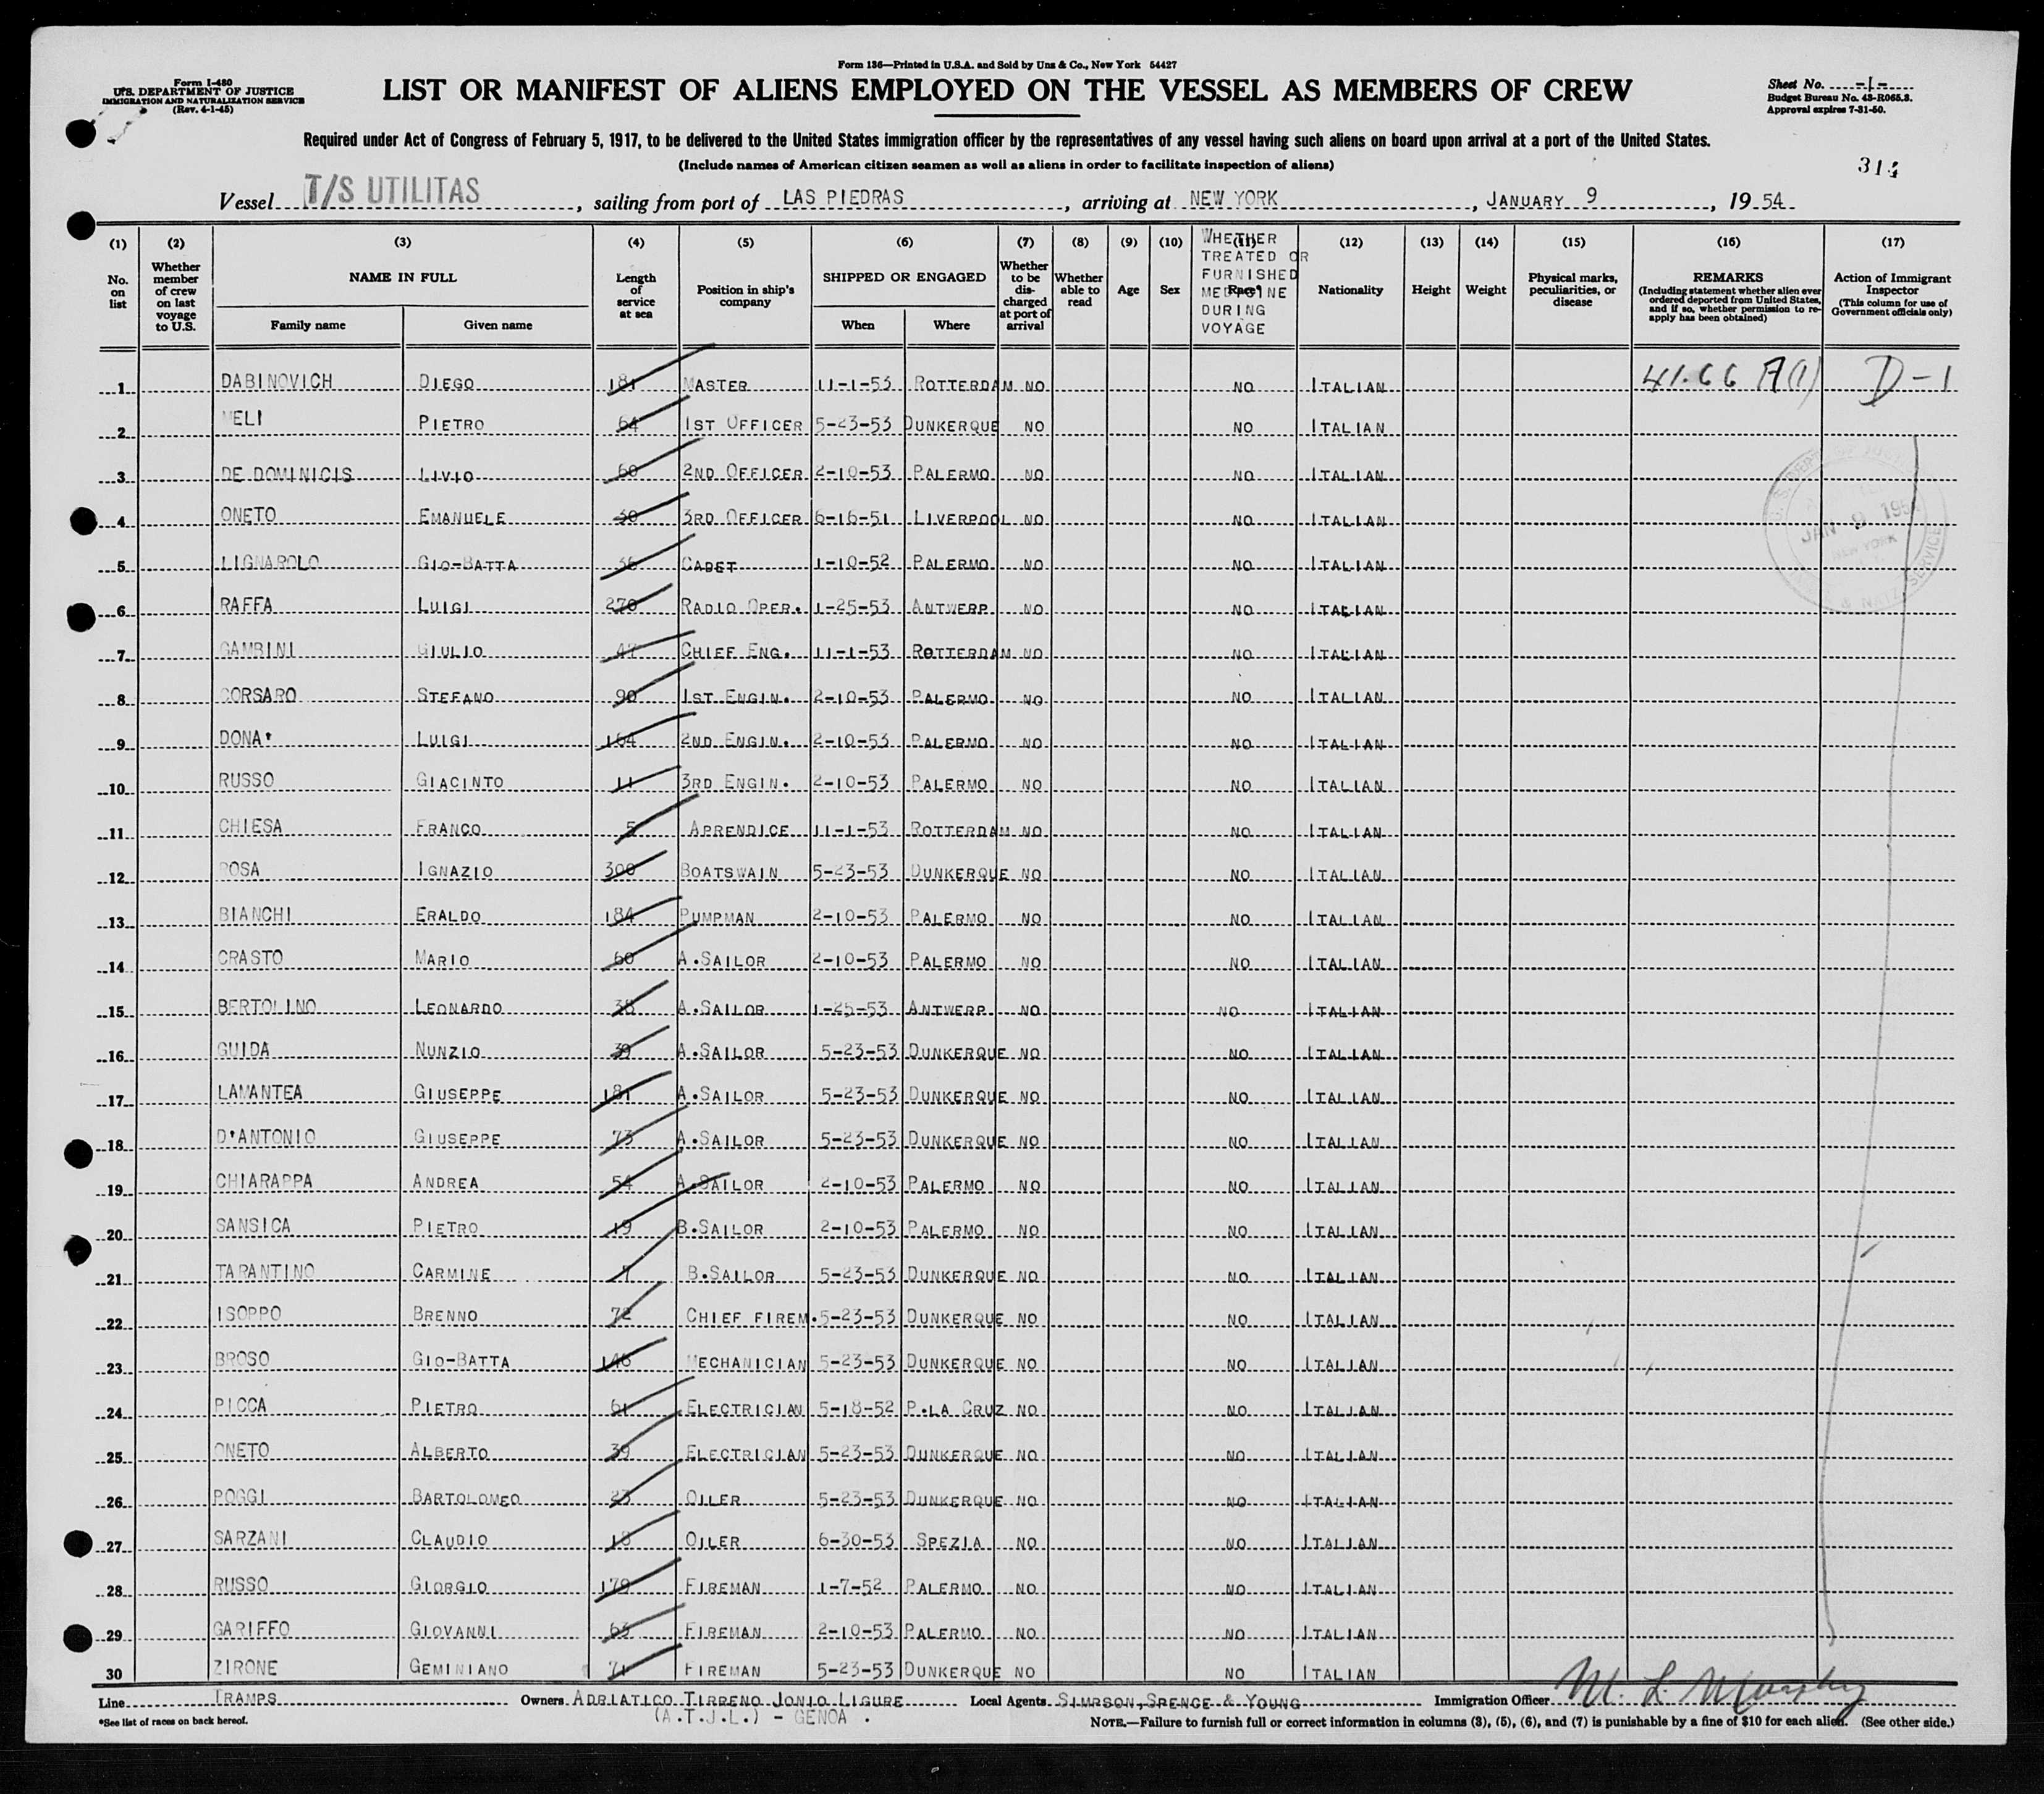 Form 136—Printed in U.S.A. and Sold by Unz & Co., New York 54427
Form I-480
U.S. DEPARTMENT OF JUSTICE
IMMIGRATION AND NATURALIZATION SERVICE
(Rev. 4-1-45)
LIST OR MANIFEST OF ALIENS EMPLOYED ON THE VESSEL AS MEMBERS OF CREW
Sheet No. -1-
Budget Bureau No. 43-R065.3.
Approval expires 7-31-50.
Required under Act of Congress of February 5, 1917, to be delivered to the United States immigration officer by the representatives of any vessel having such aliens on board upon arrival at a port of the United States.
(Include names of American citizen seamen as well as aliens in order to facilitate inspection of aliens)
314
Vessel T/S UTILITAS, sailing from port of LAS PIEDRAS, arriving at NEW YORK, JANUARY 9, 1954
(1) No. on list
(2) Whether member of crew on last voyage to U.S.
(3) NAME IN FULL Family name Given name
(4) Length of service at sea
(5) Position in ship's company
(6) SHIPPED OR ENGAGED When Where
(7) Whether to be discharged at port of arrival
(8) Whether able to read
(9) Age
(10) Sex
(11) Race* WHETHER TREATED OR FURNISHED MEDICINE DURING VOYAGE
(12) Nationality
(13) Height
(14) Weight
(15) Physical marks, peculiarities, or disease
(16) REMARKS (Including statement whether alien ever ordered deported from United States, and if so, whether permission to reapply has been obtained)
(17) Action of Immigrant Inspector (This column for use of Government officials only)
1 DABINOVICH DIEGO 181 MASTER 11-1-53 ROTTERDAM NO NO ITALIAN 41.66 A(1) D-1
2 MELI PIETRO 64 1ST OFFICER 5-23-53 DUNKERQUE NO NO ITALIAN
3 DE DOMINICIS LIVIO 60 2ND OFFICER 2-10-53 PALERMO NO NO ITALIAN
4 ONETO EMANUELE 30 3RD OFFICER 6-16-51 LIVERPOOL NO NO ITALIAN
5 LIGNAROLO GIO-BATTA 36 CADET 1-10-52 PALERMO NO NO ITALIAN
6 RAFFA LUIGI 270 RADIO OPER. 1-25-53 ANTWERP NO NO ITALIAN
7 GAMBINI GIULIO 47 CHIEF ENG. 11-1-53 ROTTERDAM NO NO ITALIAN
8 CORSARO STEFANO 90 1ST ENGIN. 2-10-53 PALERMO NO NO ITALIAN
9 DONA' LUIGI 164 2ND ENGIN. 2-10-53 PALERMO NO NO ITALIAN
10 RUSSO GIACINTO 11 3RD ENGIN. 2-10-53 PALERMO NO NO ITALIAN
11 CHIESA FRANCO 5 APRENDICE 11-1-53 ROTTERDAM NO NO ITALIAN
12 ROSA IGNAZIO 300 BOATSWAIN 5-23-53 DUNKERQUE NO NO ITALIAN
13 BIANCHI ERALDO 184 PUMPMAN 2-10-53 PALERMO NO NO ITALIAN
14 CRASTO MARIO 60 A.SAILOR 2-10-53 PALERMO NO NO ITALIAN
15 BERTOLINO LEONARDO 38 A.SAILOR 1-25-53 ANTWERP NO NO ITALIAN
16 GUIDA NUNZIO 39 A.SAILOR 5-23-53 DUNKERQUE NO NO ITALIAN
17 LAMANTEA GIUSEPPE 181 A.SAILOR 5-23-53 DUNKERQUE NO NO ITALIAN
18 D'ANTONIO GIUSEPPE 73 A.SAILOR 5-23-53 DUNKERQUE NO NO ITALIAN
19 CHIARAPPA ANDREA 54 A.SAILOR 2-10-53 PALERMO NO NO ITALIAN
20 SANSICA PIETRO 19 B.SAILOR 2-10-53 PALERMO NO NO ITALIAN
21 TARANTINO CARMINE B.SAILOR 5-23-53 DUNKERQUE NO NO ITALIAN
22 ISOPPO BRENNO 72 CHIEF FIREM. 5-23-53 DUNKERQUE NO NO ITALIAN
23 BROSO GIO-BATTA MECHANICIAN 5-23-53 DUNKERQUE NO NO ITALIAN
24 PICCA PIETRO 61 ELECTRICIAN 5-18-52 P.LA CRUZ NO NO ITALIAN
25 ONETO ALBERTO 39 ELECTRICIAN 5-23-53 DUNKERQUE NO NO ITALIAN
26 POGGI BARTOLOMEO 23 OILER 5-23-53 DUNKERQUE NO NO ITALIAN
27 SARZANI CLAUDIO 18 OILER 6-30-53 SPEZIA NO NO ITALIAN
28 RUSSO GIORGIO 179 FIREMAN 1-7-52 PALERMO NO NO ITALIAN
29 GARIFFO GIOVANNI 63 FIREMAN 2-10-53 PALERMO NO NO ITALIAN
30 ZIRONE GEMINIANO 71 FIREMAN 5-23-53 DUNKERQUE NO NO ITALIAN
JAN 9 195
NEW YORK
Line TRAMPS Owners ADRIATICO TIRRENO JONIO LIGURE Local Agents SIMPSON, SPENCE & YOUNG Immigration Officer M. L. Murphy
(A.T.J.L.) - GENOA.
*See list of races on back hereof.
NOTE.—Failure to furnish full or correct information in columns (3), (5), (6), and (7) is punishable by a fine of $10 for each alien. (See other side.)